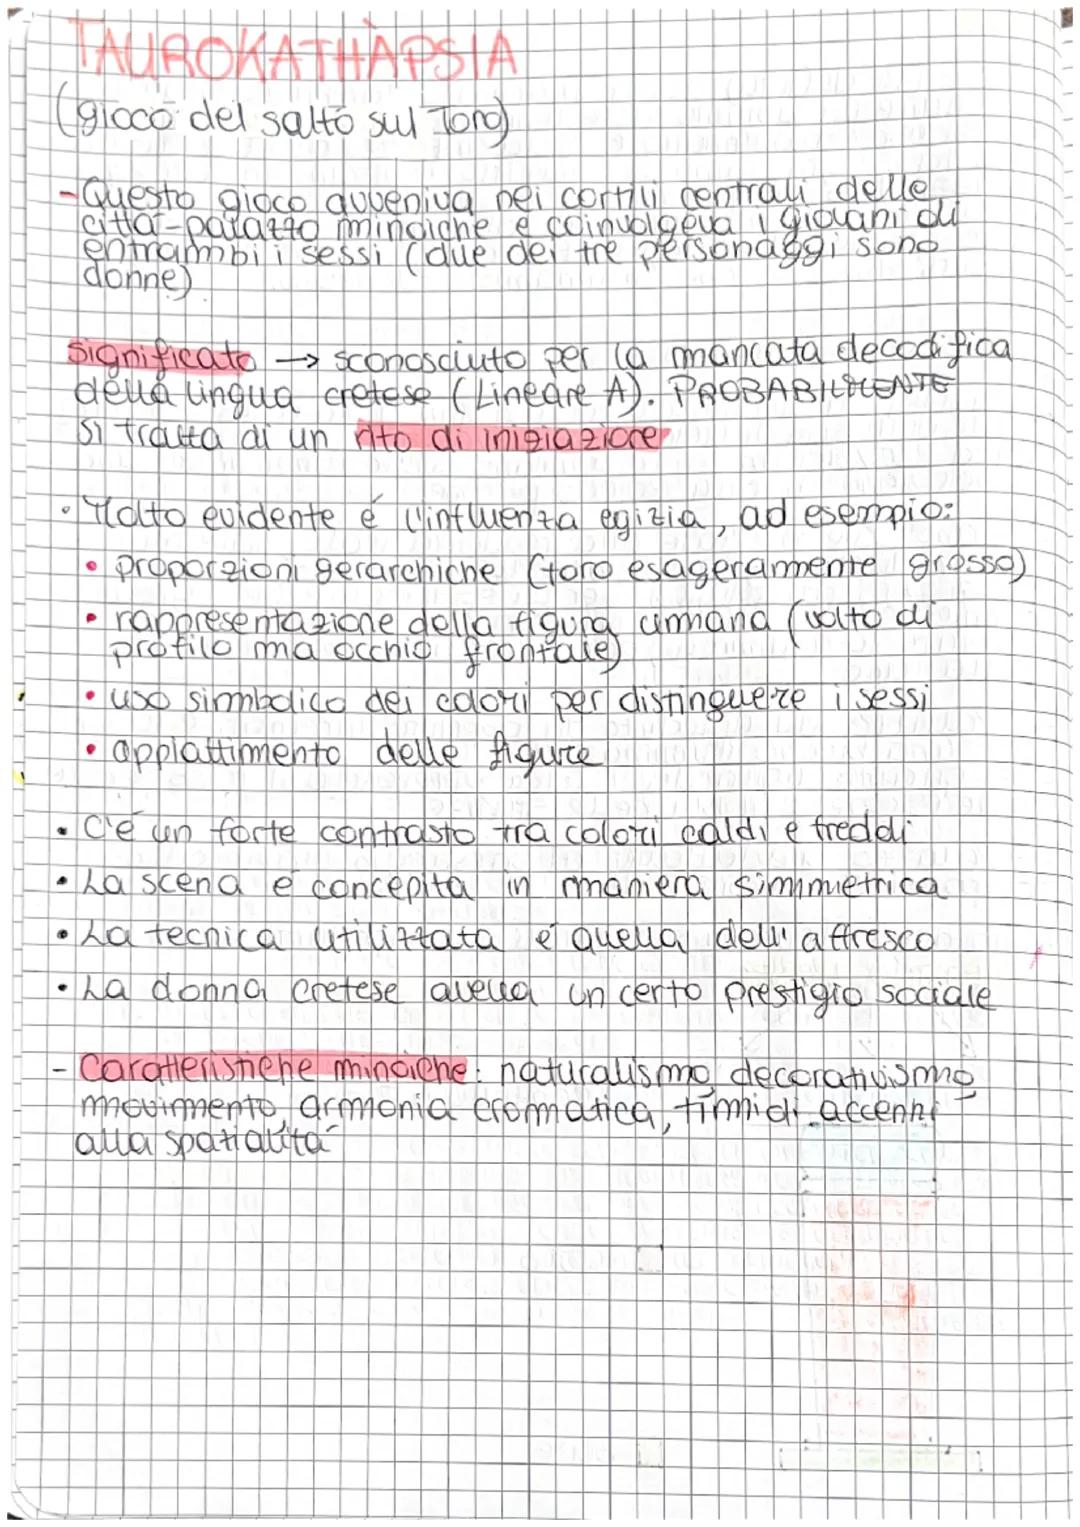 TAUROKATHÀPSIA
(gioco del salto sul Toro)
- Questo gioco avveniva nei cortili centrali delle
città-palazzo minoiche e coinvolgeva i giovani di
entrambi i sessi (due dei tre personaggi sono
donne)
significato → sconosciuto per la mancata decodifica
della lingua cretese (Lineare A). PROBABILMENTE
si tratta di un rito di iniziazione
• Molto evidente é l'influenza egizia, ad esempio:
• proporzioni gerarchiche (toro esageratamente grosso)
• rappresentazione della figura umana (volto di
profilo ma occhio frontale)
• uso simbolico dei colori per distinguere i sessi
• appiattimento delle figure
• C'é un forte contrasto tra colori caldi e freddi
• La scena é concepita in maniera simmetrica
• La tecnica utilizzata é quella dell'affresco
• La donna cretese aveva un certo prestigio sociale
- Caratteristiche minoiche: naturalismo, decorativismo,
movimento, armonia cromatica, timidi accenni
alla spazialitá